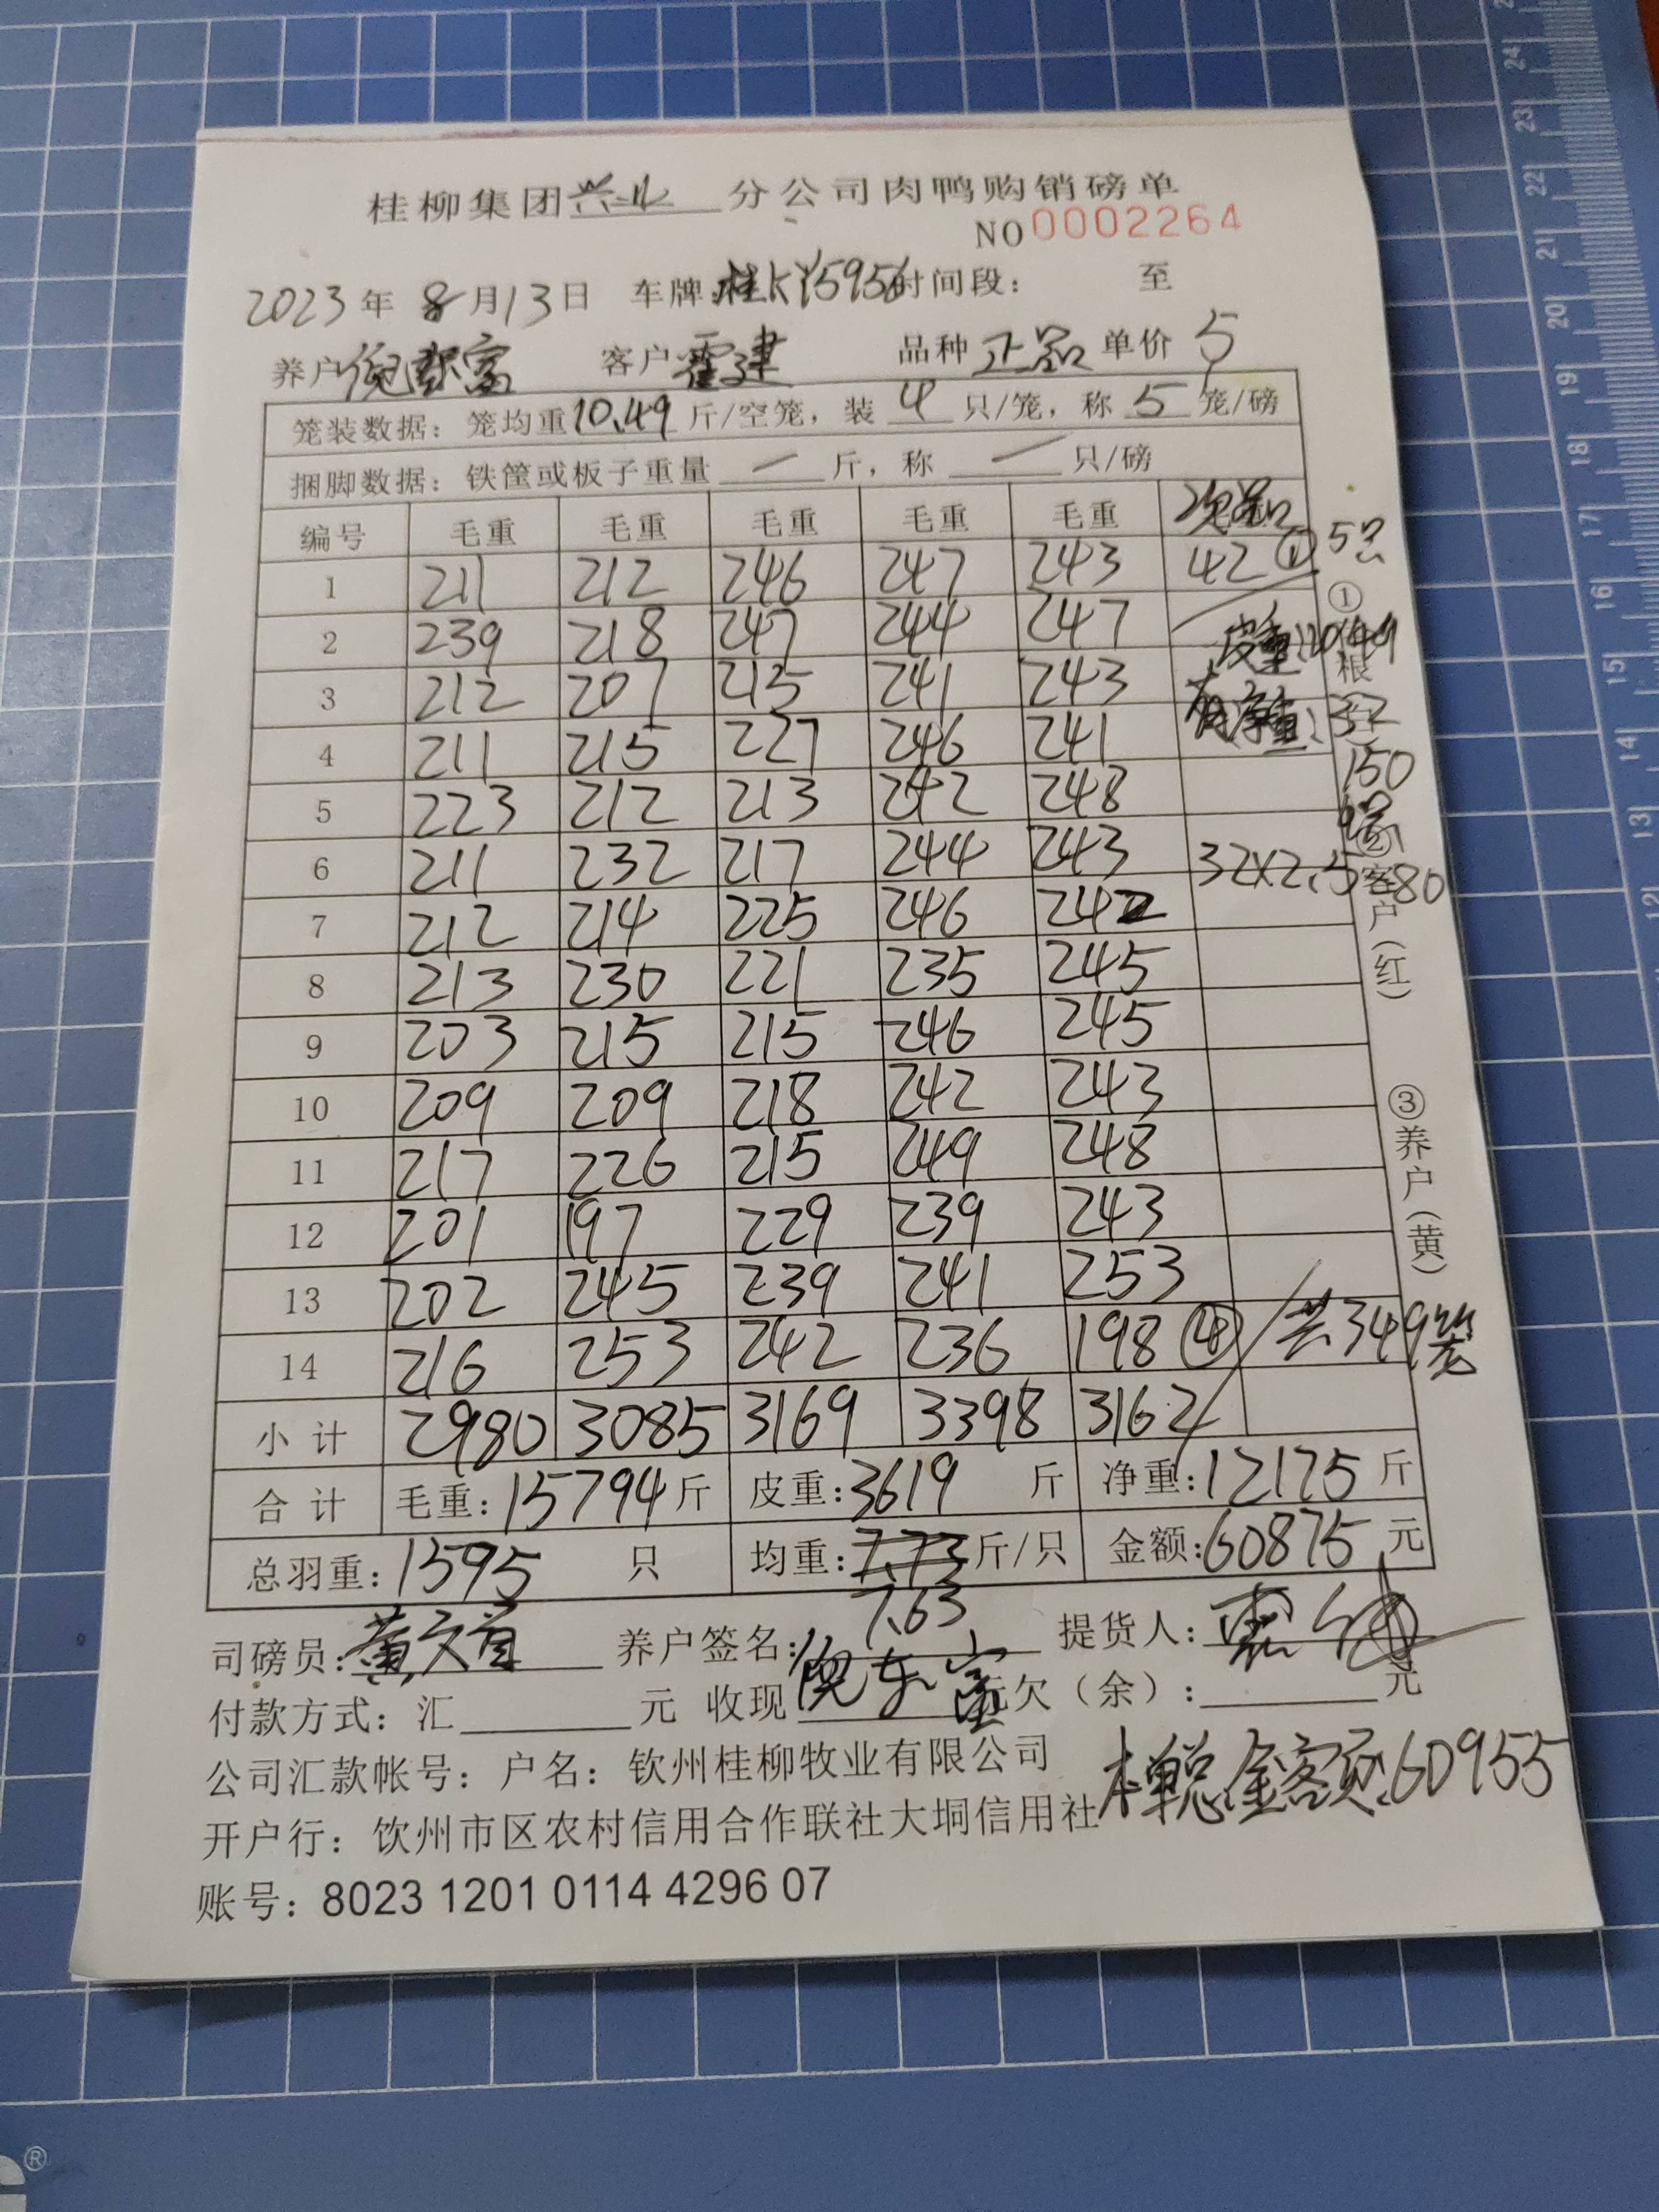 桂柳集团兴业分公司肉鸭购销磅单
NO 0002264
2023年 8月13日 车牌:桂KY5956 时间段: 至
养户 客户 霍建 品种 正品 单价 5
笼装数据: 笼均重10.49斤/空笼, 装 4 只/笼, 称 5 笼/磅
捆脚数据: 铁筐或板子重量 — 斤, 称 — 只/磅
编号 毛重 毛重 毛重 毛重 毛重 次品
1 211 212 246 247 243 42 ① 5只
2 239 218 247 244 247 皮重:10.49
3 212 207 215 241 243 净重:32
4 211 215 227 246 241
5 223 212 213 242 248 150
6 211 232 217 244 243 32×2.5=80
7 212 214 225 246 242
8 213 230 221 235 245
9 203 215 215 246 245
10 209 209 218 242 243
11 217 226 215 249 248
12 201 197 229 239 243
13 202 245 239 241 253
14 216 253 242 236 198 ④ 共349笼
小计 2980 3085 3169 3398 3162
合计 毛重:15794斤 皮重:3619 斤 净重:12175斤
总羽重:1595 只 均重:7.73斤/只 金额:60875元
7.63
司磅员: 养户签名:倪东富 提货人:
付款方式: 汇 元 收现 元欠(余): 元
公司汇款帐号: 户名: 钦州桂柳牧业有限公司
本单总金额:60955
开户行: 钦州市区农村信用合作联社大垌信用社
账号: 8023 1201 0114 4296 07
①
根
②客户(红)
③养户(黄)
24
23
22
21
20
19
18
17
16
15
14
13
12
®